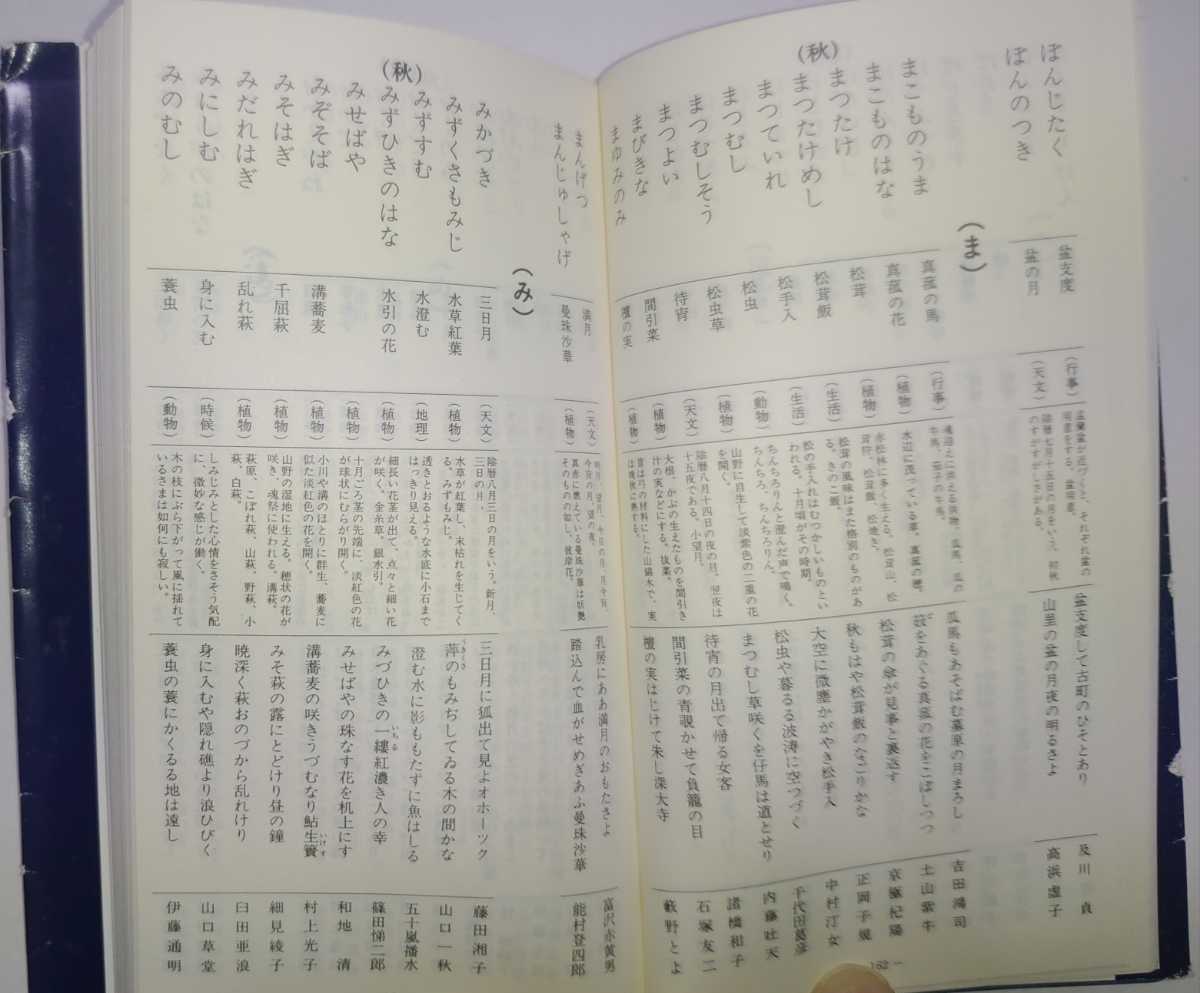 (秋)
ぼんじたく
盆支度
(行事)
盂蘭盆が近づくと、それぞれ盆の
用意をする。盆用意。
盆支度して古町のひそとあり
及川 貞
ぼんのつき
盆の月
(天文)
陰暦七月十五日の月をいう。初秋
のすがすがしさがある。
山里の盆の月夜の明るさよ
高浜虚子
(ま)
まこものうま
真菰の馬
(行事)
魂迎えに供える供物。瓜馬、瓜の
牛馬、茄子の牛馬。
瓜馬もあそばむ墓原の月まろし
吉田鴻司
まこものはな
真菰の花
(植物)
水辺に茂っている草。真菰の穂。
をあぐる真菰の花をこぼしつつ
土山紫牛
まつたけ
松茸
(植物)
赤松林に多く生える。松茸山、松
茸狩、松茸飯、
松茸の傘が見事と裏返す
京極杞陽
まつたけめし
松茸飯
(生活)
松茸の風味はまた格別のものがあ
る。きのこ飯。
秋もはや松茸飯のなごりかな
正岡子規
まつていれ
松手入
(生活)
松の手入れはむつかしいものとい
われる。十月頃がその時期。
大空に微塵かがやき松手入
中村汀女
まつむし
松虫
(動物)
ちんちろりんと澄んだ声で鳴く。
ちんちろ、ちんちろりん。
松虫や暮るる波涛に空つづく
千代田葛彦
まつむしそう
松虫草
(植物)
山野に自生して淡紫色の二重の花
を開く。
まつむし草咲くを仔馬は道とせり
内藤吐天
まつよい
待宵
(天文)
陰暦八月十四日の夜の月。翌夜は
十五夜である。小望月。
待宵の月出て帰る女客
諸橋和子
まびきな
間引菜
(植物)
大根、かぶの生えたものを間引き
汁の実などにする。抜菜。
間引菜の青覗かせて負籠の目
石塚友二
まゆみのみ
檀の実
(植物)
昔は弓の材料にした山錦木で、実
は晩秋に熟する。
檀の実はじけて朱し深大寺
籔野とよ
162
(秋)
まんげつ
満月
(天文)
今宵の月、望の夜。
乳房にああ満月のおもたさよ
富沢赤黄男
まんじゅしゃげ
曼珠沙華
(植物)
真赤に燃えている曼珠沙華は妖艶
そのものの如し。彼岸花。
踏込んで血がせめぎあふ曼珠沙華
能村登四郎
(み)
みかづき
三日月
(天文)
陰暦八月三日の月をいう。新月、
三日の月。
三日月に狐出て見よオホーツク
藤田湘子
みずくさもみじ
水草紅葉
(植物)
水草が紅葉し、末枯れを生じてく
る。みずもみじ。
萍のもみぢしてゐる木の間かな
うきくさ
山口一秋
みずすむ
水澄む
(地理)
透きとおるような水底に小石まで
はっきり見える。
澄む水に影ももたずに魚はしる
五十嵐播水
みずひきのはな
水引の花
(植物)
細長い花茎が出て、点々と細い花
が咲く。金糸草、銀水引。
みづひきの一縷紅濃き人の幸
いちる
篠田悌二郎
みせばや
(植物)
十月ごろ茎の先端に、淡紅色の花
が球状にむらがり開く。
みせばやの珠なす花を机上にす
和地 清
みぞそば
溝蕎麦
(植物)
小川や溝のほとりに群生、蕎麦に
似た淡紅色の花を開く。
溝蕎麦の咲きうづむなり鮎生簀
いけす
村上光子
みそはぎ
千屈萩
(植物)
山野の湿地に生える。穂状の花が
咲き、魂祭に使われる。溝萩。
みそ萩の露にとどけり昼の鐘
細見綾子
みだれはぎ
乱れ萩
(植物)
萩原、こぼれ萩、山萩、野萩、小
萩、白萩。
暁深く萩おのづから乱れけり
臼田亜浪
みにしむ
身に入む
(時候)
しみじみとした心情をさそう気配
に、微妙な感じが働く。
身に入むや隠れ礁より浪ひびく
山口草堂
みのむし
蓑虫
(動物)
木の枝にぶら下がって風に揺れて
いるさまは如何にも寂しい。
蓑虫の蓑にかくるる地は遠し
伊藤通明